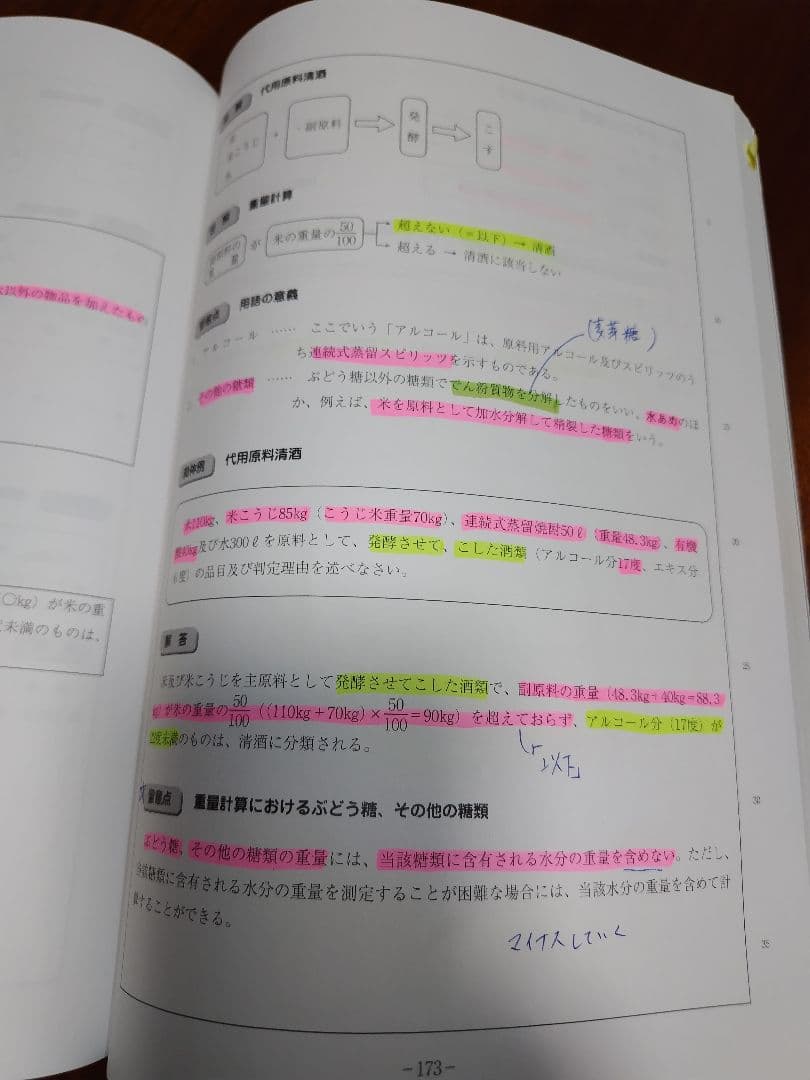 以外の物品を加えたもの
○kg）が米の重
未満のものは、
代用原料清酒
こうじ
＋
副原料
発酵
こす
重量計算
が
米の重量の50/100
超えない（＝以下）→ 清酒
超える → 清酒に該当しない
留意点 用語の意義
（麦芽糖）
アルコール …… ここでいう「アルコール」は、原料用アルコール及びスピリッツのう
ち連続式蒸留スピリッツを示すものである。
その他の糖類 …… ぶどう糖以外の糖類ででん粉質物を分解したものをいい、水あめのほ
か、例えば、米を原料として加水分解して精製した糖類をいう。
具体例 代用原料清酒
米110kg、米こうじ85kg（こうじ米重量70kg）、連続式蒸留焼酎50ℓ（重量48.3kg）、有機
酸40kg及び水300ℓを原料として、発酵させて、こした酒類（アルコール分17度、エキス分
度）の品目及び判定理由を述べなさい。
解答
米及び米こうじを主原料として発酵させてこした酒類で、副原料の重量（48.3kg＋40kg＝88.3
kg）が米の重量の50/100（(110kg＋70kg)×50/100＝90kg）を超えておらず、アルコール分（17度）が
22度未満のものは、清酒に分類される。
以下」
留意点 重量計算におけるぶどう糖、その他の糖類
ぶどう糖、その他の糖類の重量には、当該糖類に含有される水分の重量を含めない。ただし、
当該糖類に含有される水分の重量を測定することが困難な場合には、当該水分の重量を含めて計
算することができる。
マイナスしていく
5
10
15
20
25
30
35
－173－